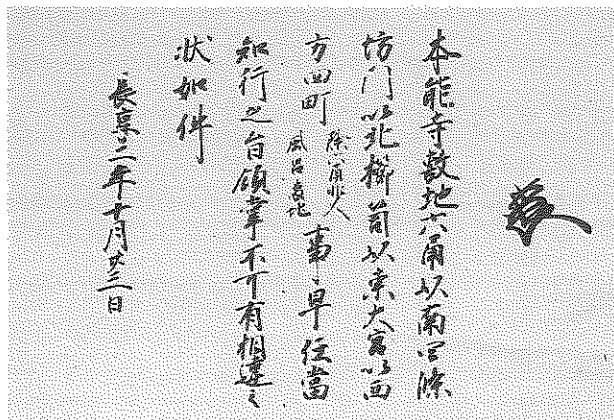 本能寺敷地六角以南四條
坊門以北櫛笥以東大宮以西
方四町
除
風呂敷地
事、早任當
知行之旨領掌不可有相違之
状如件
長享二年十月廿三日